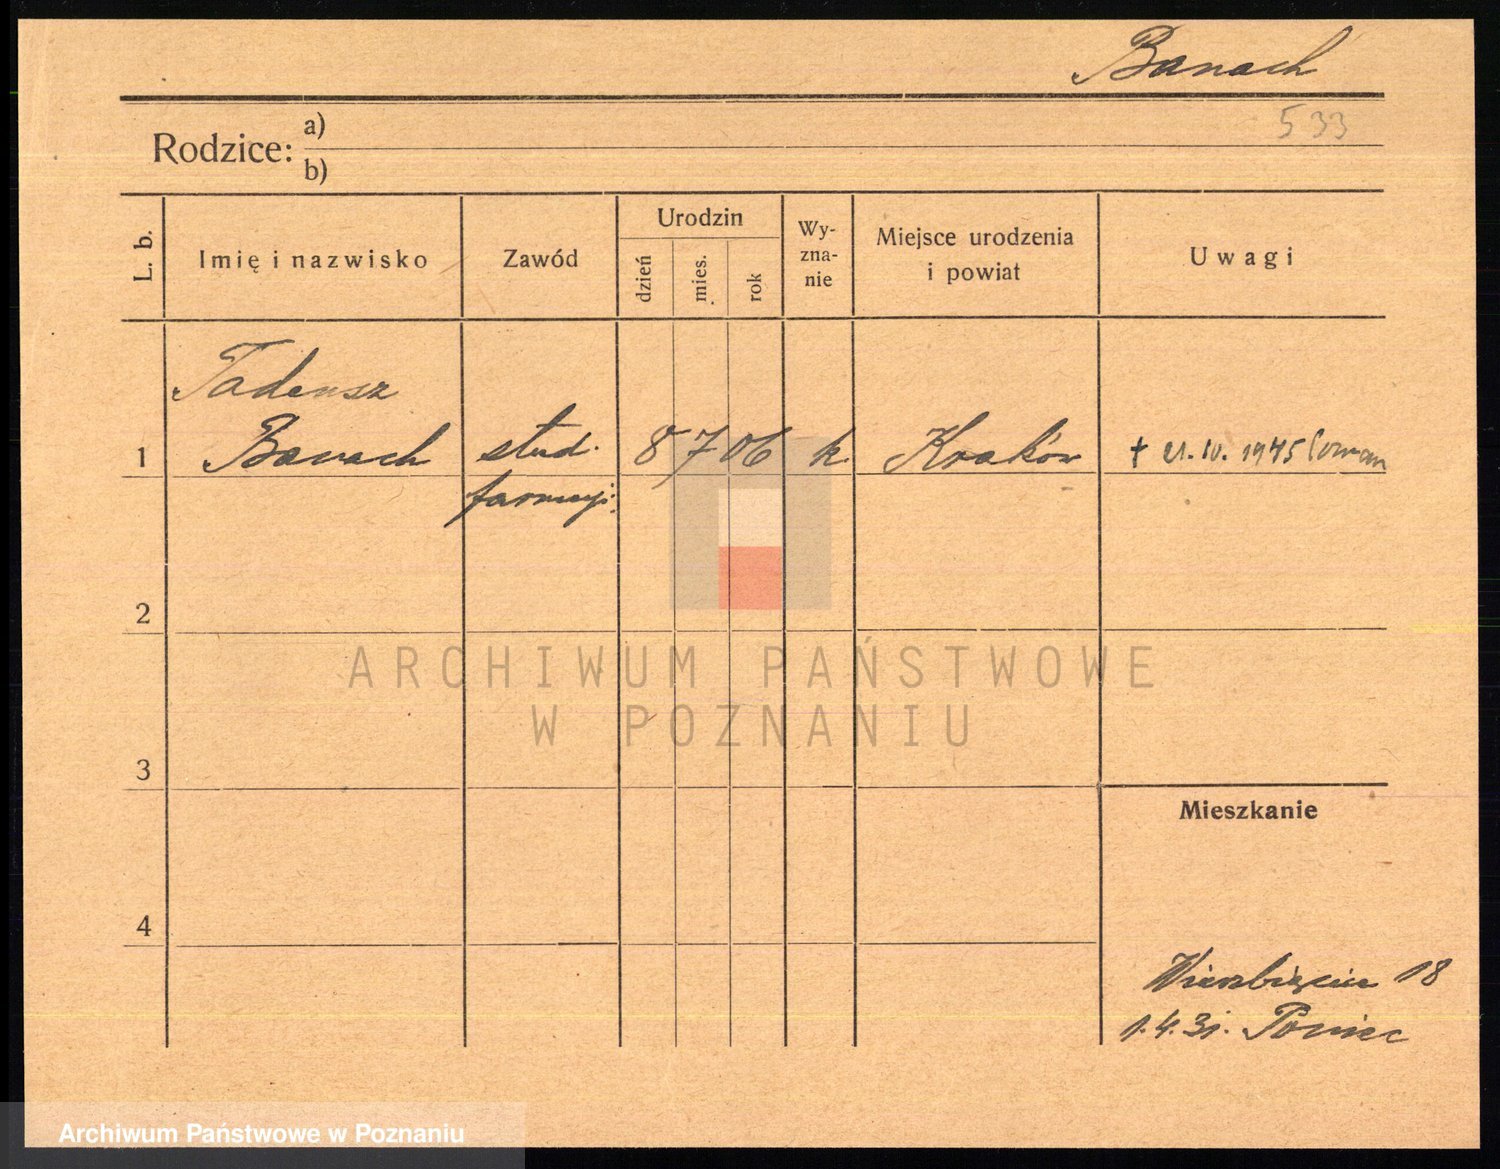 Banach
533
Rodzice:
a)
b)
L. b.
Imię i nazwisko
Zawód
Urodzin
dzień
mies.
rok
Wy-
zna-
nie
Miejsce urodzenia
i powiat
Uwagi
Tadeusz
1 Banach stud. 8 7 06 k. Kraków † 21. IV. 1945 Poznan
farmacji
2
3
Mieszkanie
4
Wierzbięcice 18
1.4.31. Poniec
ARCHIWUM PAŃSTWOWE
W POZNANIU
Archiwum Państwowe w Poznaniu